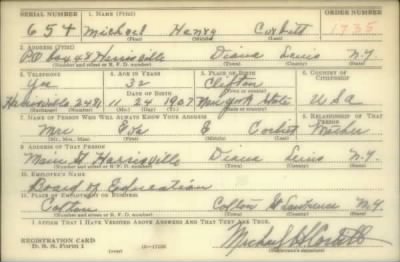 SERIAL NUMBER 1. NAME (Print) ORDER NUMBER
654 Michael Henry Corbitt 1735
(First) (Middle) (Last)
2. ADDRESS (Print)
P.O. box 48 Harrisville Diana Lewis N.Y.
(Number and street or R. F. D. number) (Town) (County) (State)
3. TELEPHONE 4. AGE IN YEARS 5. PLACE OF BIRTH 6. COUNTRY OF CITIZENSHIP
Yes 32 Clifton
DATE OF BIRTH (Town or county)
Harrisville 2481 11 24 1907 New york State USA
(Exchange) (Number) (Mo.) (Day) (Yr.) (State or country)
7. NAME OF PERSON WHO WILL ALWAYS KNOW YOUR ADDRESS 8. RELATIONSHIP OF THAT PERSON
Mrs Eva E Corbitt Mother
(Mr., Mrs., Miss) (First) (Middle) (Last)
9. ADDRESS OF THAT PERSON
Main St Harrisville Diana Lewis N.Y.
(Number and street or R. F. D. number) (Town) (County) (State)
10. EMPLOYER'S NAME
Board of Education
11. PLACE OF EMPLOYMENT OR BUSINESS
Colton Colton St Lawrence N.Y.
(Number and street or R. F. D. number) (Town) (County) (State)
I AFFIRM THAT I HAVE VERIFIED ABOVE ANSWERS AND THAT THEY ARE TRUE.
REGISTRATION CARD
D. S. S. Form 1 (over) Michael H Corbitt
(Registrant's signature)